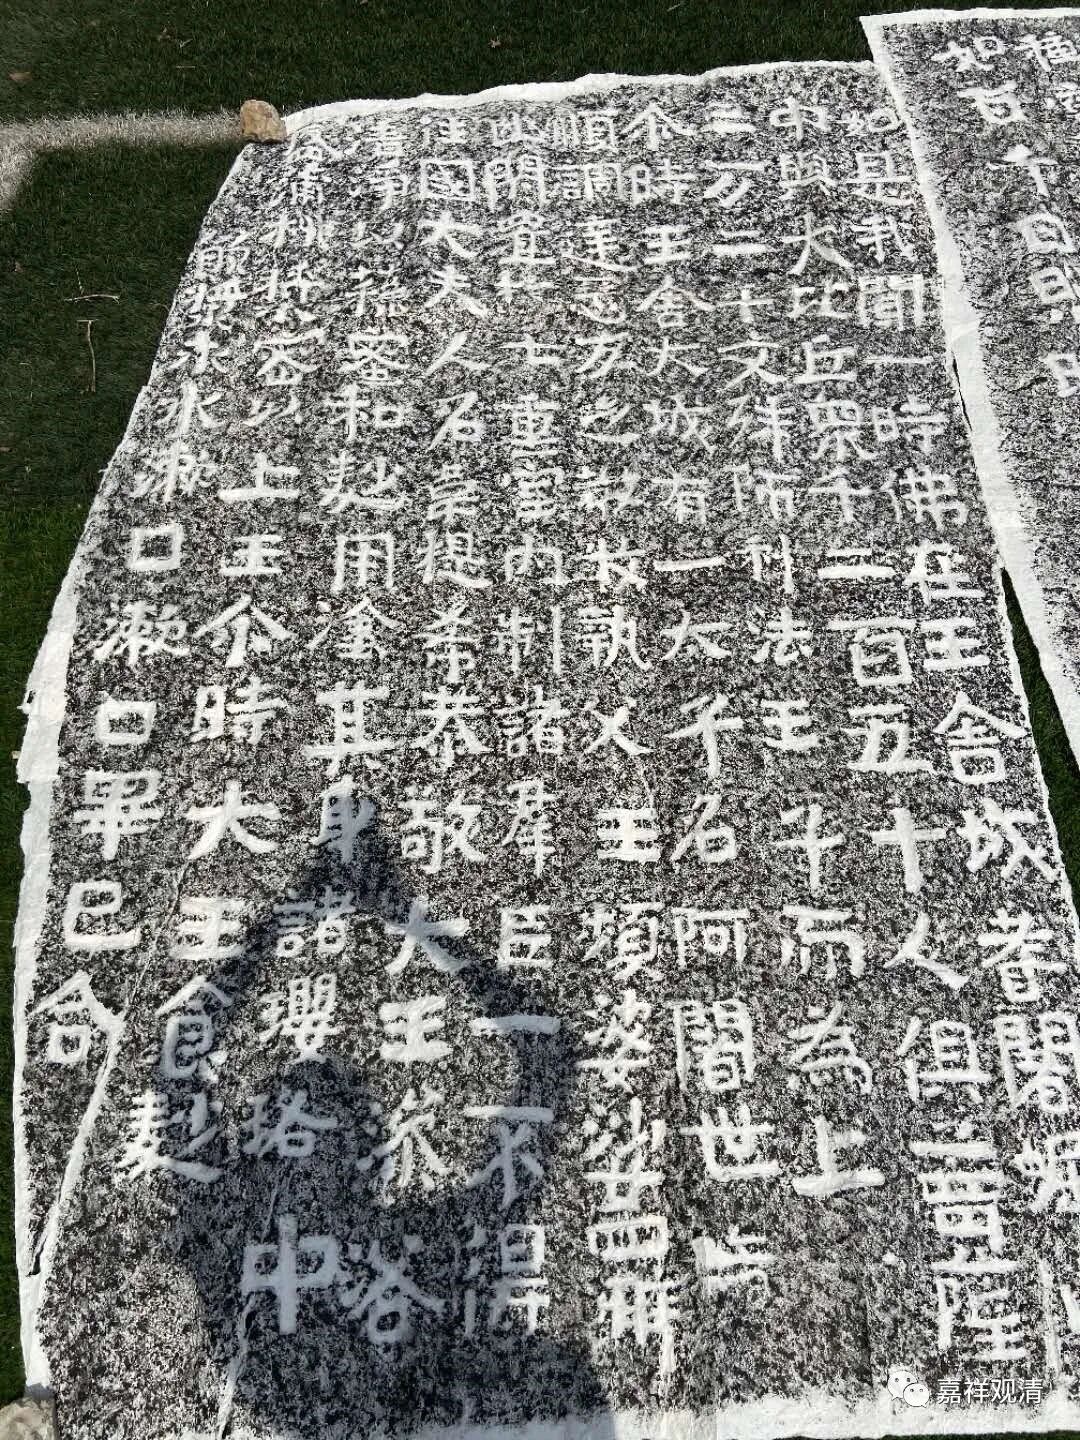 種
如百千日
如是我聞一時佛在王舍城耆闍崛
中與大比丘衆千二百五十人俱
三万二千文殊師利法王子而為上
尒時王舍大城有一太子名阿闍世
順調達惡友之教收執父王頻婆娑
幽閉置於七重室內制諸羣臣一不得
往國大夫人名韋提希恭敬大王澡浴
清淨以蘇蜜和麨用塗其身諸瓔珞中
盛蒲桃漿密以上王尒時大王食麨
飲漿求水漱口漱口畢已合
嘉祥观清